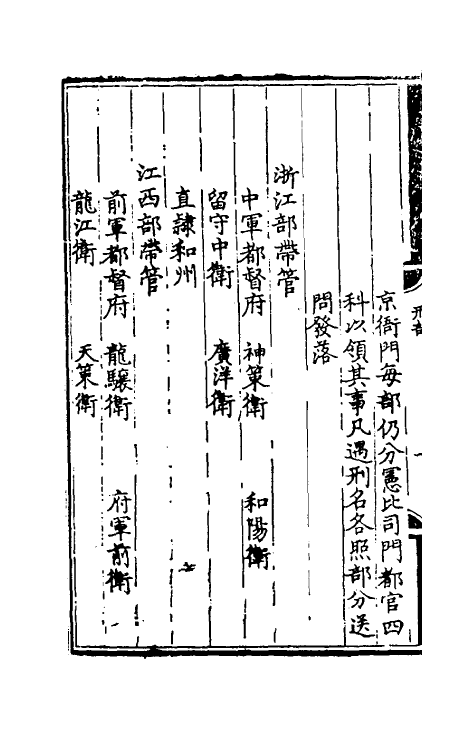 京衙門每部仍分憲比司門都官四
科以領其事凡遇刑名各照部分送
問發落
浙江部帶管
中軍都督府 神策衛 和陽衛
留守中衛 廣洋衛
直隷和州
江西部帶管
前軍都督府 龍驤衛 府軍前衛
龍江衛 天策衛